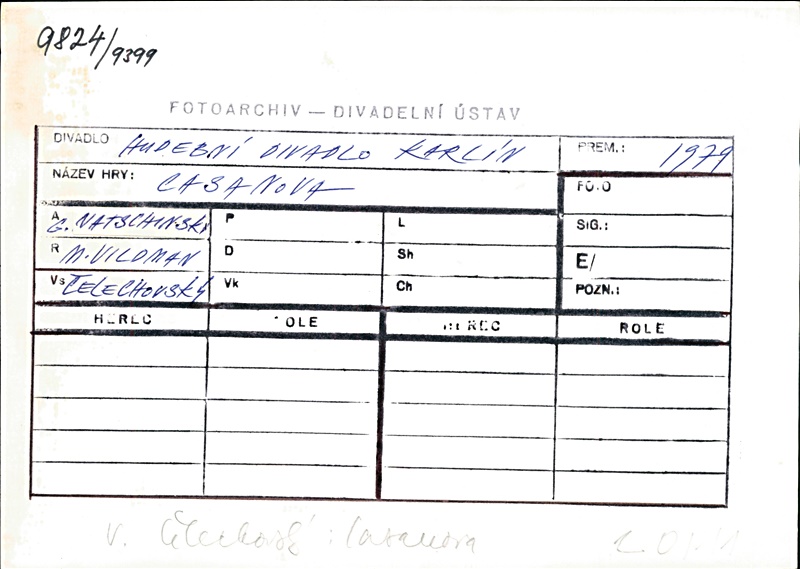 9824/9399
FOTOARCHIV — DIVADELNÍ ÚSTAV
DIVADLO HUDEBNÍ DIVADLO KARLÍN PREM.: 1979
NÁZEV HRY: CASANOVA FOTO
A G. NATSCHINSKI P L SIG.:
R M. VILDMAN D Sh E/
Vs ČELECHOVSKÝ Vk Ch POZN.:
HEREC ROLE HEREC ROLE
V. Čelechovský : Casanova